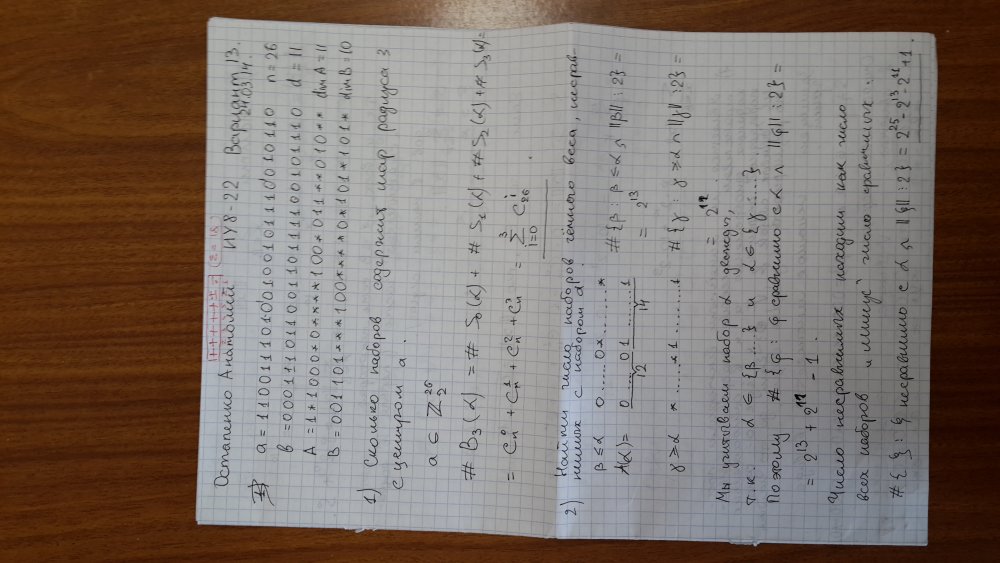 Остапенко Анатолий ИУ8-22 Вариант 13.
24.03.14.
a = 11001110100010010111010110 n = 26
b = 00011101100110111100101110 d = 11
A = 1*1000*0****100*011**010** dim A = 11
B = 001101***100****0*101*101* dim B = 10
1) Сколько наборов содержит шар радиуса 3
с центром a.
a ∈ ℤ₂²⁶
# B₃(α) = # S₀(α) + # S₁(α) + # S₂(α) + # S₃(α) =
= Cₙ⁰ + Cₙ¹ + Cₙ² + Cₙ³ = Σ³ᵢ₌₀ Cⁱ₂₆ .
2) Найти число наборов чётного веса, несрав-
нимых с набором a.
β ≤ α 0......0*........* #{β : β ≤ α ∩ ||β|| ⋮ 2} =
N(α) = 0......01......1 = 2¹³
12 14
γ ≥ α *......*1........1 #{γ : γ ≥ α ∩ ||γ|| ⋮ 2} =
= 2¹¹
Мы учитываем набор α дважды,
т.к. α ∈ {β.....} и α ∈ {γ.....}
Поэтому #{φ : φ сравнимо с α ∩ ||φ|| ⋮ 2} =
= 2¹³ + 2¹¹ - 1 .
Число несравнимых находим как число
всех наборов "минус" число сравнимых :
#{ξ : ξ несравнимо с α ∩ ||ξ|| ⋮ 2} = 2²⁵ - 2¹³ - 2¹¹ + 1 .